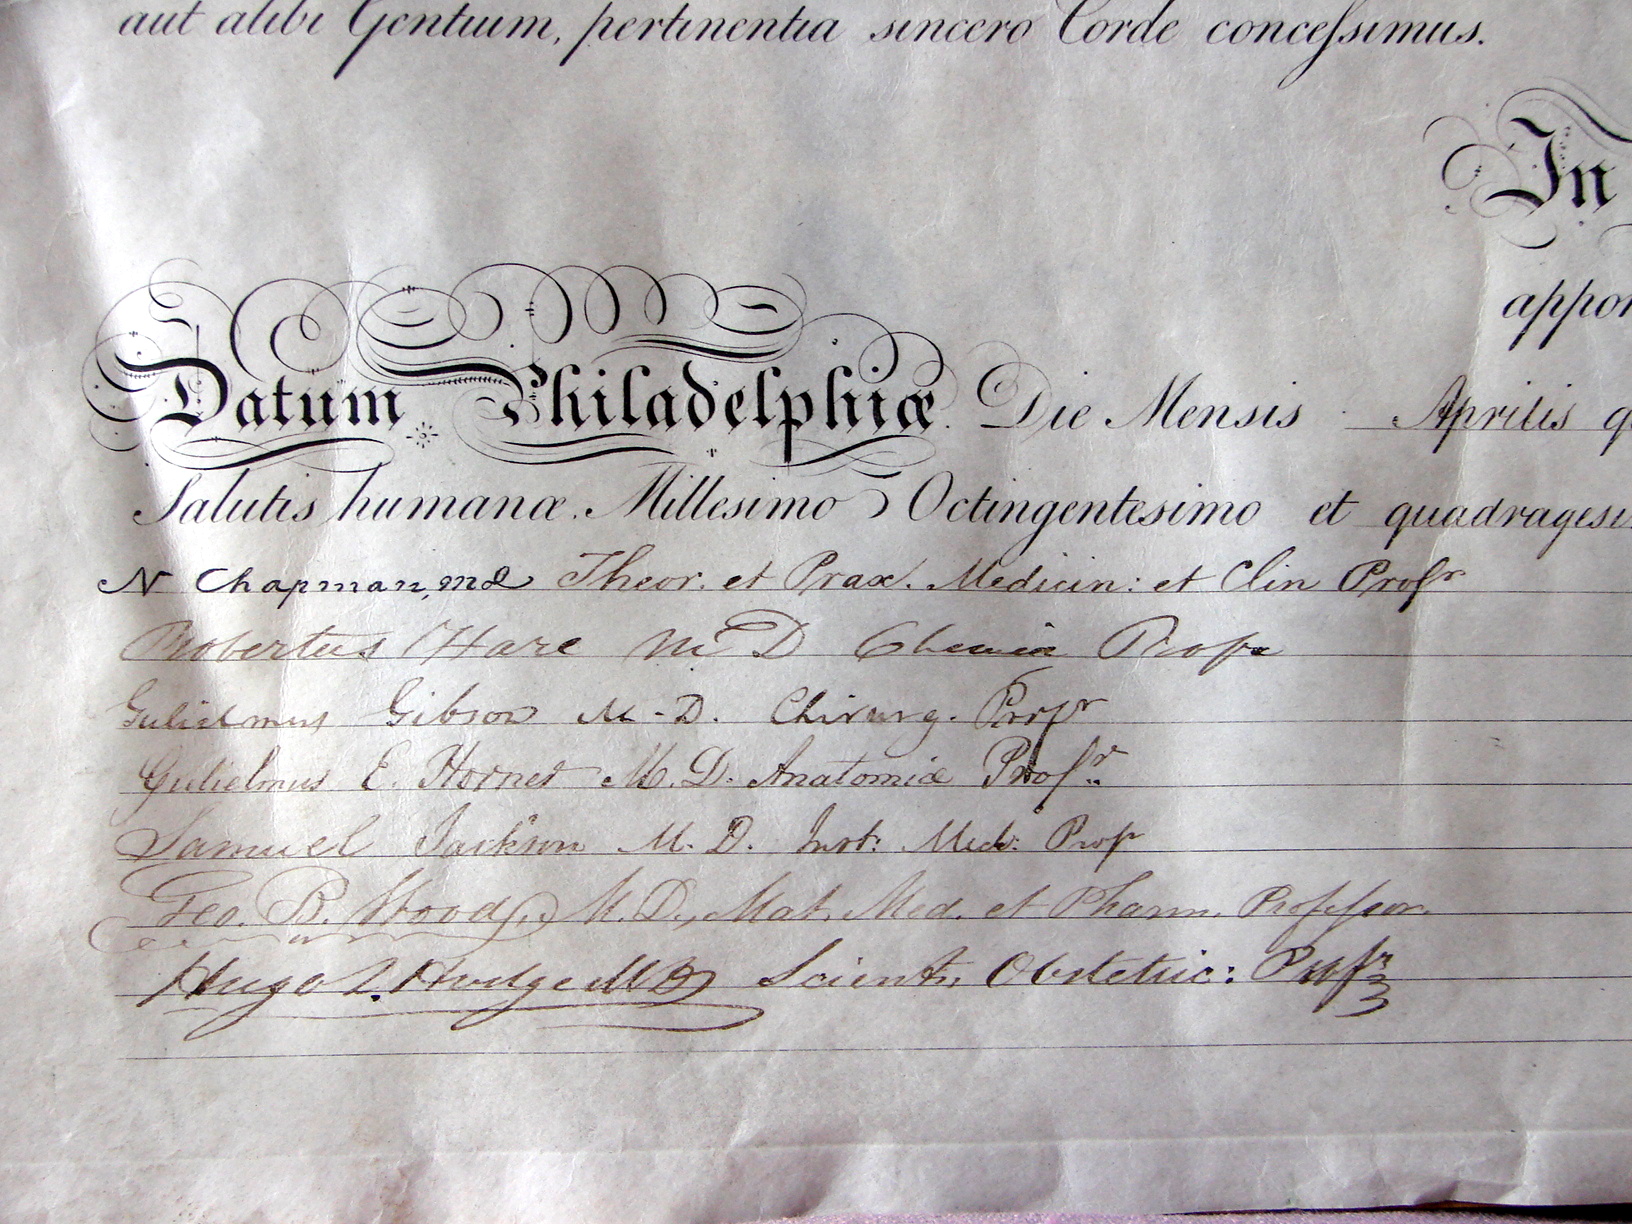 aut alibi Gentium, pertinentia sincero Corde concefsimus.
In
appo
Datum Philadelphiæ. Die Mensis Aprilis q
Salutis humanæ. Millesimo Octingentesimo et quadragesi
N Chapman, MD Theor. et Prax. Medicin: et Clin Profr
Robertus Hare M D Chemiæ Profr
Gulielmus Gibson M.D. Chirurg. Profr
Gulielmus E. Horner M.D. Anatomiæ Profr
Samuel Jackson M.D. Inst: Med: Prof
Geo. B. Wood, M.D., Mat. Med. et Pharm. Professor.
Hugo L. Hodge MD Scient. Obstetric: Profr